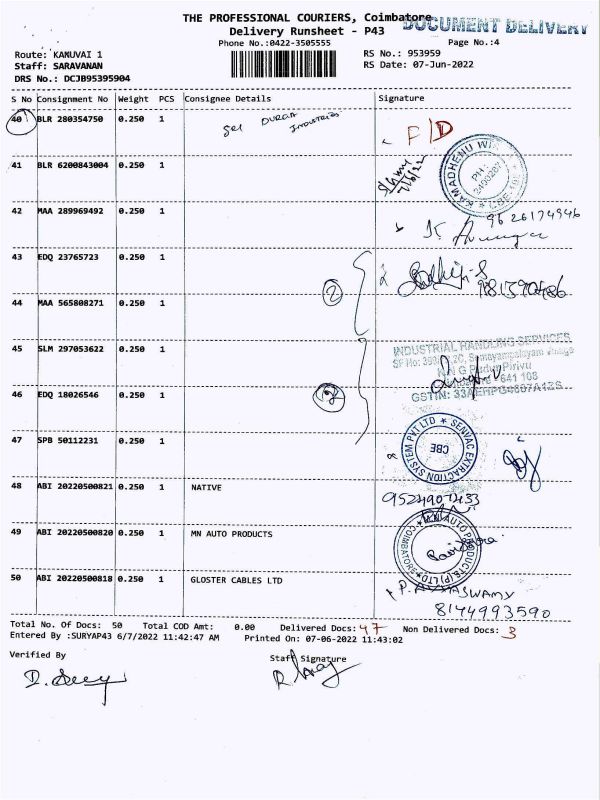 THE PROFESSIONAL COURIERS, Coimbatore
DOCUMENT DELIVERY
Delivery Runsheet - P43
Phone No.:0422-3505555
Page No.:4
Route: KANUVAI 1
RS No.: 953959
Staff: SARAVANAN
RS Date: 07-Jun-2022
DRS No.: DCJB95395904
S No Consignment No Weight PCS Consignee Details Signature
40 BLR 280354750 0.250 1 Sri DURGA INDUSTRIES F/D
41 BLR 6200843004 0.250 1
7/6/22
KAMADHENU
PH: 2400207
CBE
42 MAA 289969492 0.250 1
9626174946
43 EDQ 23765723 0.250 1
2
44 MAA 565808271 0.250 1
45 SLM 297053622 0.250 1
INDUSTRIAL HANDLING SERVICES
46 EDQ 18026546 0.250 1
2
641 108
GSTIN:
47 SPB 50112231 0.250 1
SENVAC EXTRACTION SYSTEM PVT LTD
CBE
48 ABI 20220500821 0.250 1 NATIVE
49 ABI 20220500820 0.250 1 MN AUTO PRODUCTS
MN AUTO PRODUCTS (P) LTD
COIMBATORE
50 ABI 20220500818 0.250 1 GLOSTER CABLES LTD
8144993590
Total No. Of Docs: 50 Total COD Amt: 0.00 Delivered Docs: 47 Non Delivered Docs: 3
Entered By :SURYAP43 6/7/2022 11:42:47 AM Printed On: 07-06-2022 11:43:02
Verified By
Staff Signature